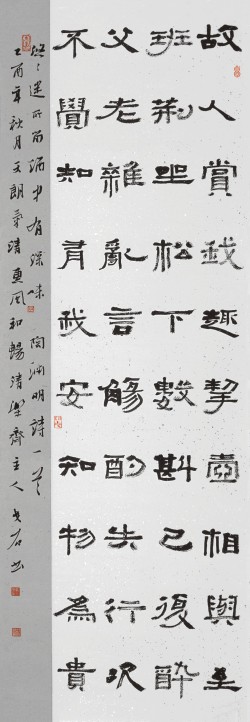 故人賞我趣挈壺相與至
班荊坐松下數斟已復醉
父老雜亂言觴酌失行次
不覺知有我安知物為貴
悠々迷所留酒中有深味 陶淵明詩一首
乙酉年秋月天朗氣清惠風和暢清樂齋主人石书